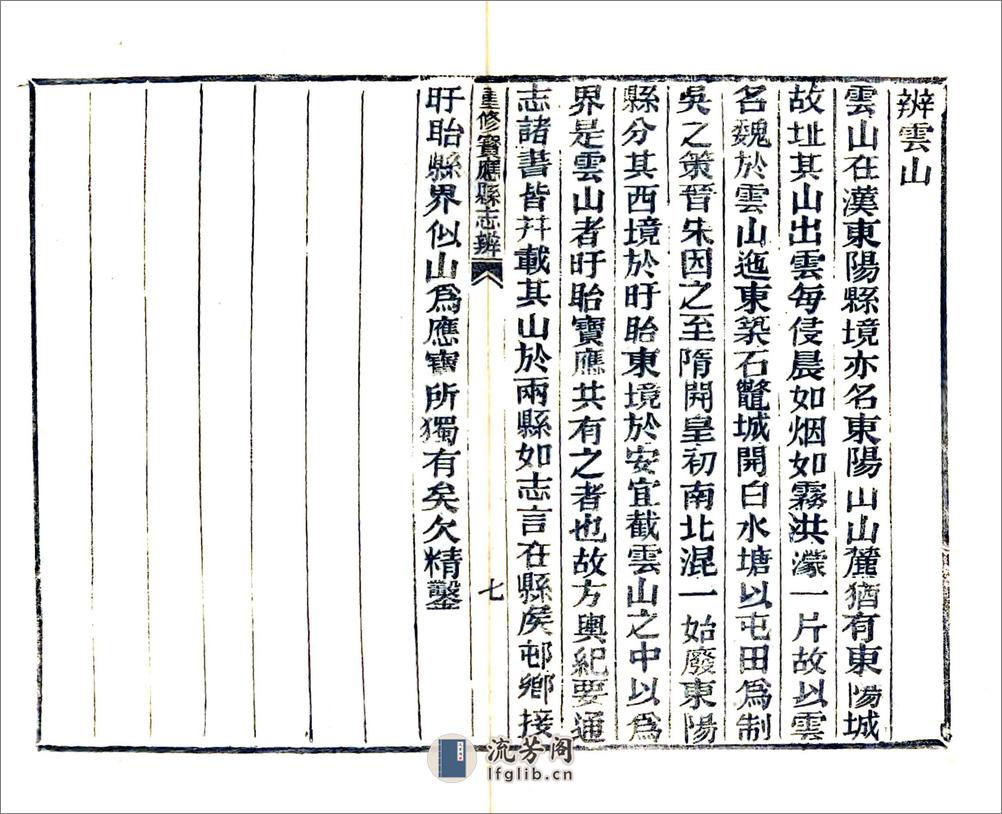 辨雲山
雲山在漢東陽縣境亦名東陽山山麓猶有東陽城
故址其山出雲每侵晨如烟如霧洪濛一片故以雲
名魏於雲山迤東築石鼈城開白水塘以屯田爲制
吳之策晉宋因之至隋開皇初南北混一始廢東陽
縣分其西境於盱眙東境於安宜截雲山之中以爲
界是雲山者盱眙寶應共有之者也故方輿紀要通
志諸書皆幷載其山於兩縣如志言在縣矦邨鄉接
重修寶應縣志辨
七
盱眙縣界似山爲應寶所獨有矣欠精鑿
流芳阁
lfglib.cn